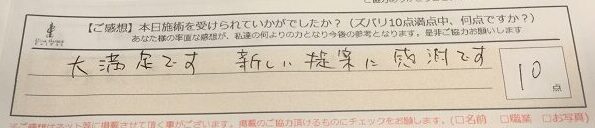 【ご感想】本日施術を受けられていかがでしたか？（ズバリ10点満点中、何点ですか？）
あなた様の率直な感想が、私達の何よりの力となり今後の参考となります。是非ご協力お願いします
大満足です 新しい提案に感謝です
10点
掲載のご協力頂けるものにチェックをお願いします。(□名前 □職業 □お写真)